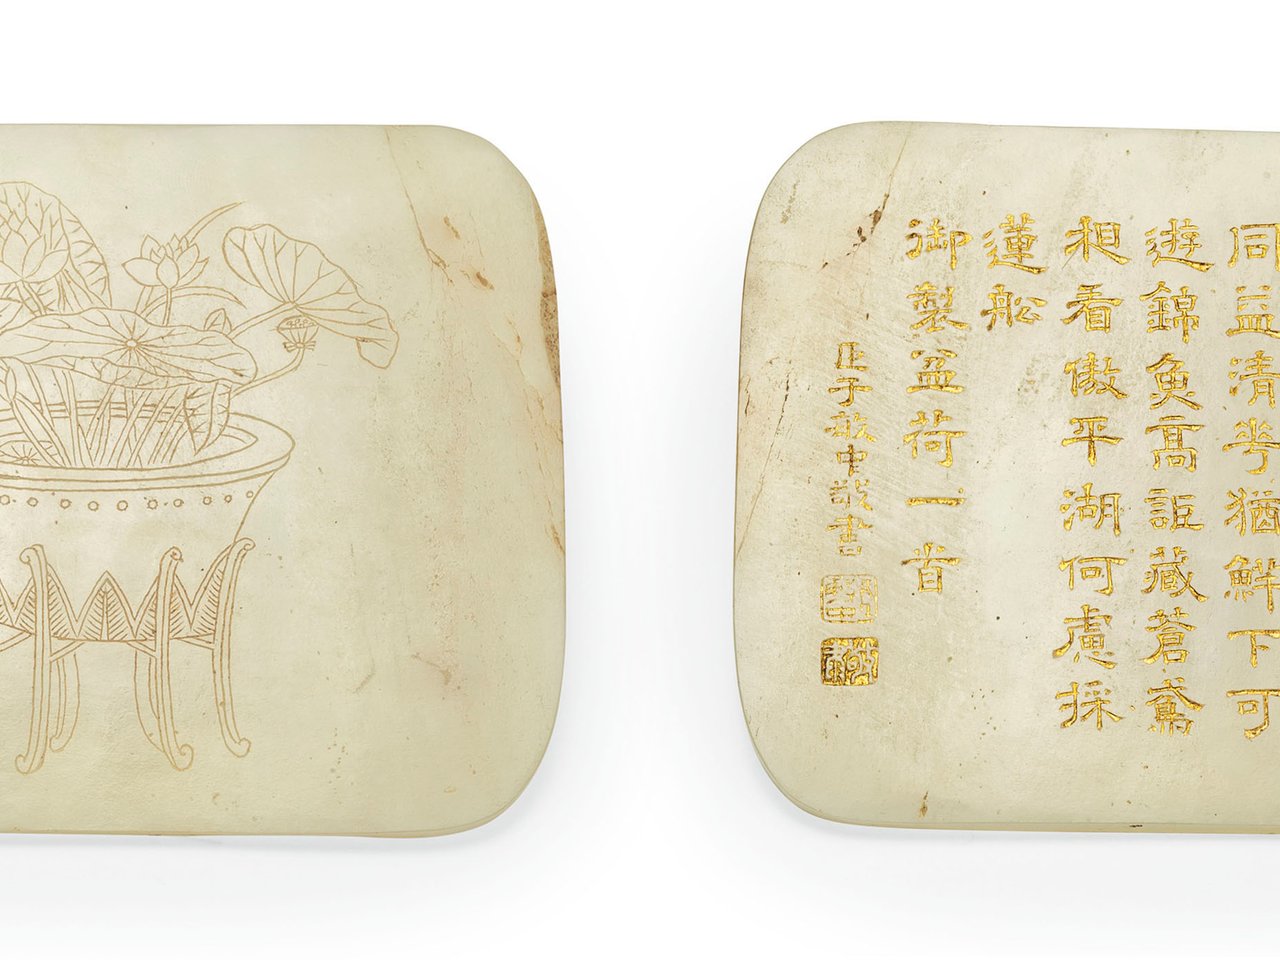 同益清華猶鮮下可
遊錦魚高詎藏蒼鳶
相看傲平湖何慮採
蓮船
御製盆荷一首
臣于敏中敬書